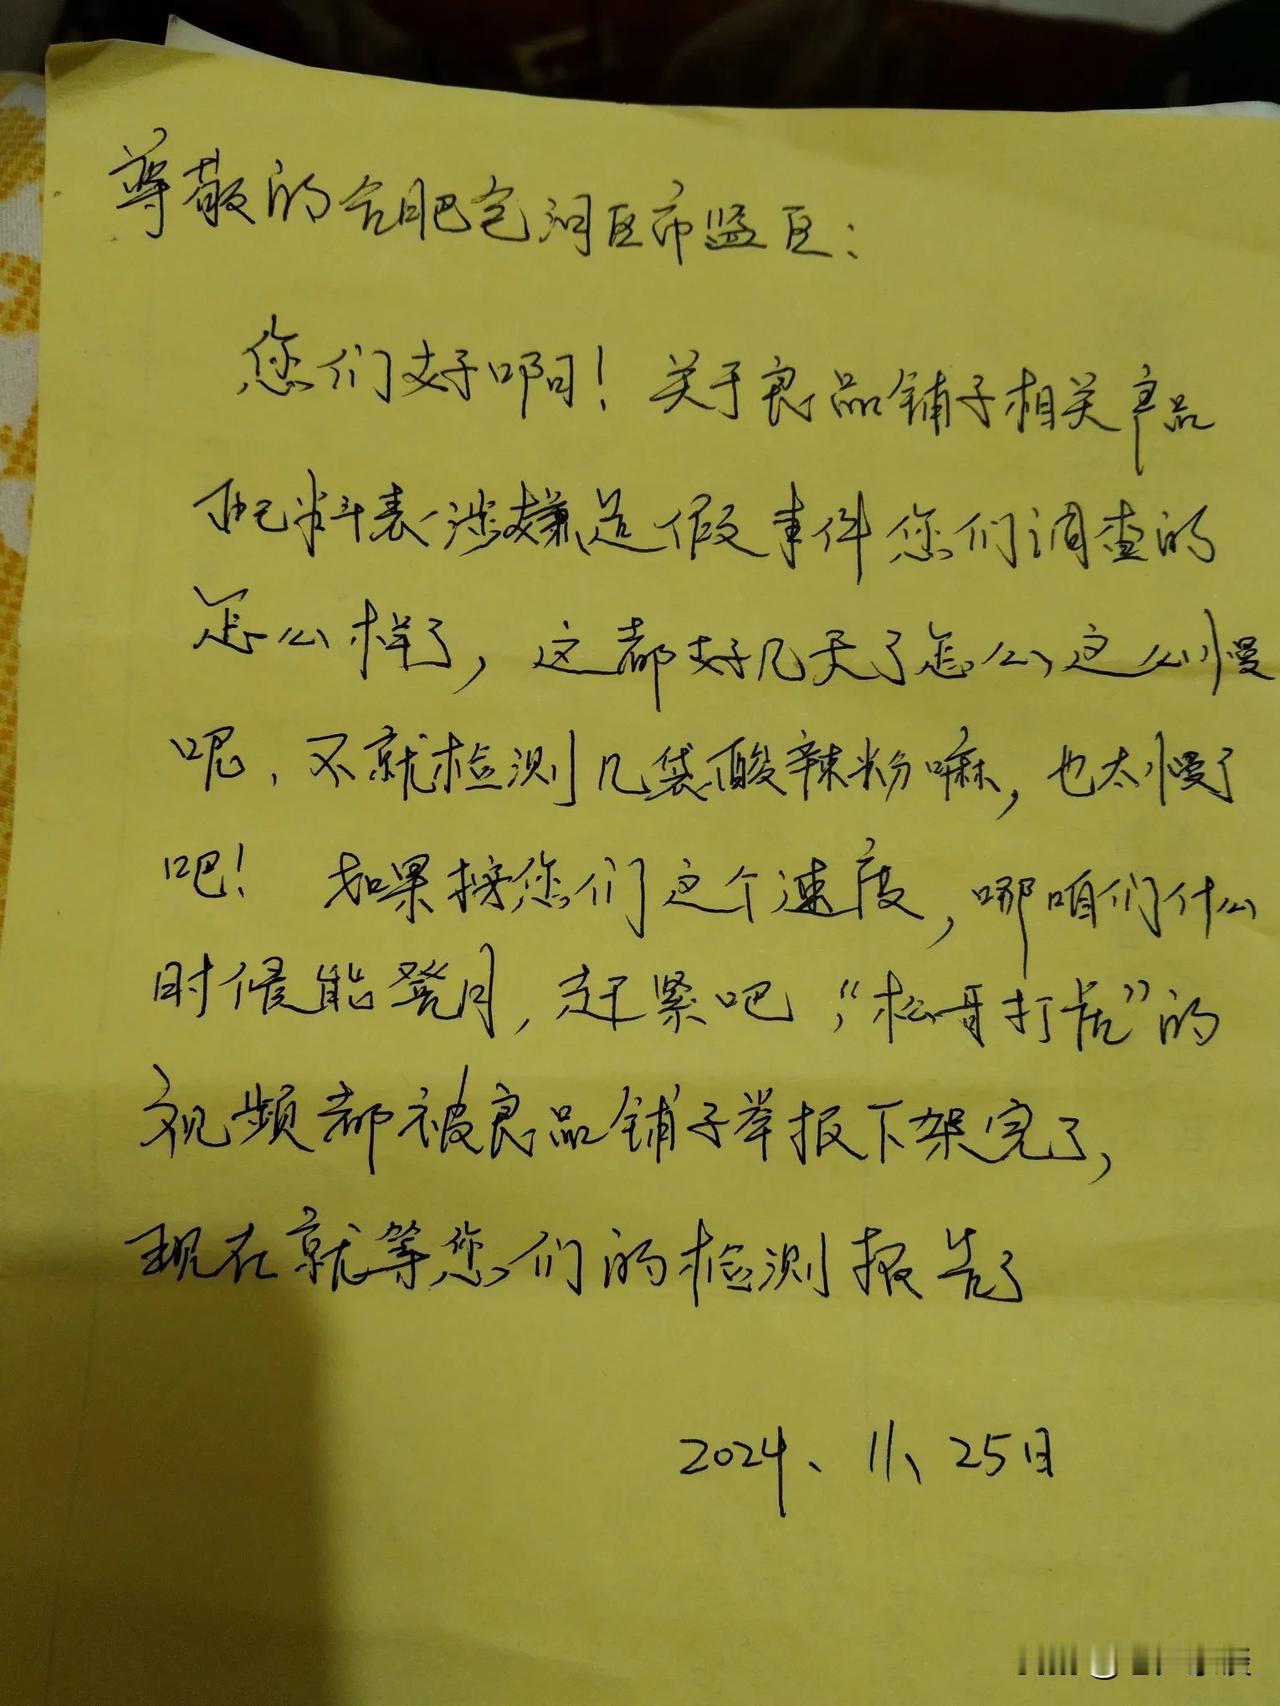 尊敬的合肥包河区市监区：
您们好啊！关于良品铺子相关产品
配料表涉嫌造假事件您们调查的
怎么样了，这都好几天了怎么这么慢
呢，不就检测几袋酸辣粉嘛，也太慢了
吧！如果按您们这个速度，哪咱们什么
时候能登月，赶紧吧，“松哥打店”的
视频都被良品铺子举报下架完了，
现在就等您们的检测报告了
2024、11、25日